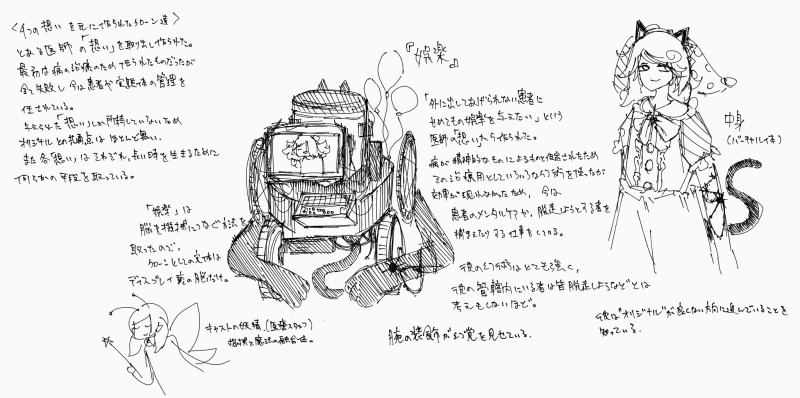 〈4つの想いを元に作られたクローン達〉
とある医師の「想い」を取り出し作られた。
最初は病の治療のため作られたものだったが
全て失敗し今は患者や実験体の管理を
任されている。
与えられた「想い」しか所持していないため
オリジナルとの共通点はほとんど無い。
また各"想い"はそれぞれ、長い時を生きるために
何らかの手段を取っている。
「娯楽」は
脳を機械につなぐ方法を
取ったので、
クローンとしての実体は
ディスプレイ裏の脳だけ。
『娯楽』
「外に出してあげられない患者に
せめてもの娯楽を与えたい」という
医師の「想い」から作られた。
病が精神的なものによるものと仮定されたため
その治療用としていろいろな幻術を使ったが
効果が現れなかったため、今は
患者のメンタルケアか、脱走しようとする者を
捕まえたりする仕事をしている。
彼の幻術はとても強く、
彼の管轄内にいる者は皆脱走しようなどとは
考えもしないほど。
中身
(バーチャル体)
キャストの妖精(医療スタッフ)
機械と魔法の融合体。
腕の装飾が幻覚を見せている。
彼は"オリジナル"が良くない方向に進んでいることを
知っている。